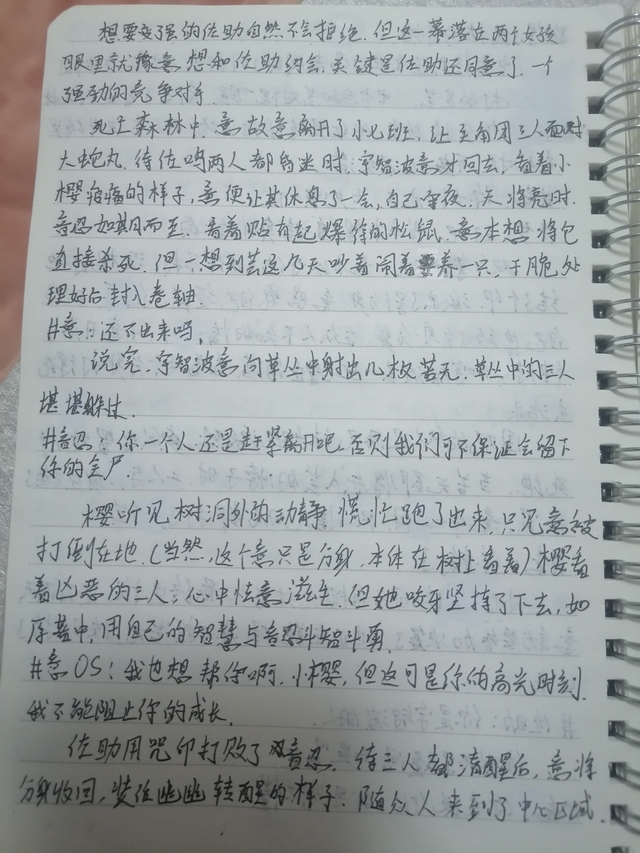 想要变强的佐助自然不会拒绝。但这一幕落在两个女孩
眼里就像意想和佐助约会,关键是佐助还同意了。一个
强劲的竞争对手
死亡森林中,意故意离开了小七班,让主角团三人面对
大蛇丸,待佐鸣两人都昏迷时,宇智波意才回去,看着小
樱疲惫的样子,意便让其休息了一会,自己守夜。天将亮时,
音忍如期而至,看着贴有起爆符的松鼠,意本想将它
直接杀死,但一想到芸这几天吵着闹着要养一只,干脆处
理好后封入卷轴。
#意:还不出来吗,
说完,宇智波意向草丛中射出几枚苦无,草丛中的三人
堪堪躲过。
#音忍:你一个人还是赶紧离开吧,否则我们可不保证会留下
你的全尸
樱听见树洞外的动静,慌忙跑了出来,只见意被
打倒在地。(当然,这个意只是分身,本体在树上看着)樱看
着凶恶的三人,心中怯意滋生,但她咬牙坚持了下去,如
原著中,用自己的智慧与音忍斗智斗勇。
#意OS:我也想帮你啊,小樱,但这可是你的高光时刻,
我不能阻止你的成长。
佐助用咒印打败了音忍,待三人都清醒后,意将
分身收回,装作幽幽转醒的样子,随众人来到了中心区域,